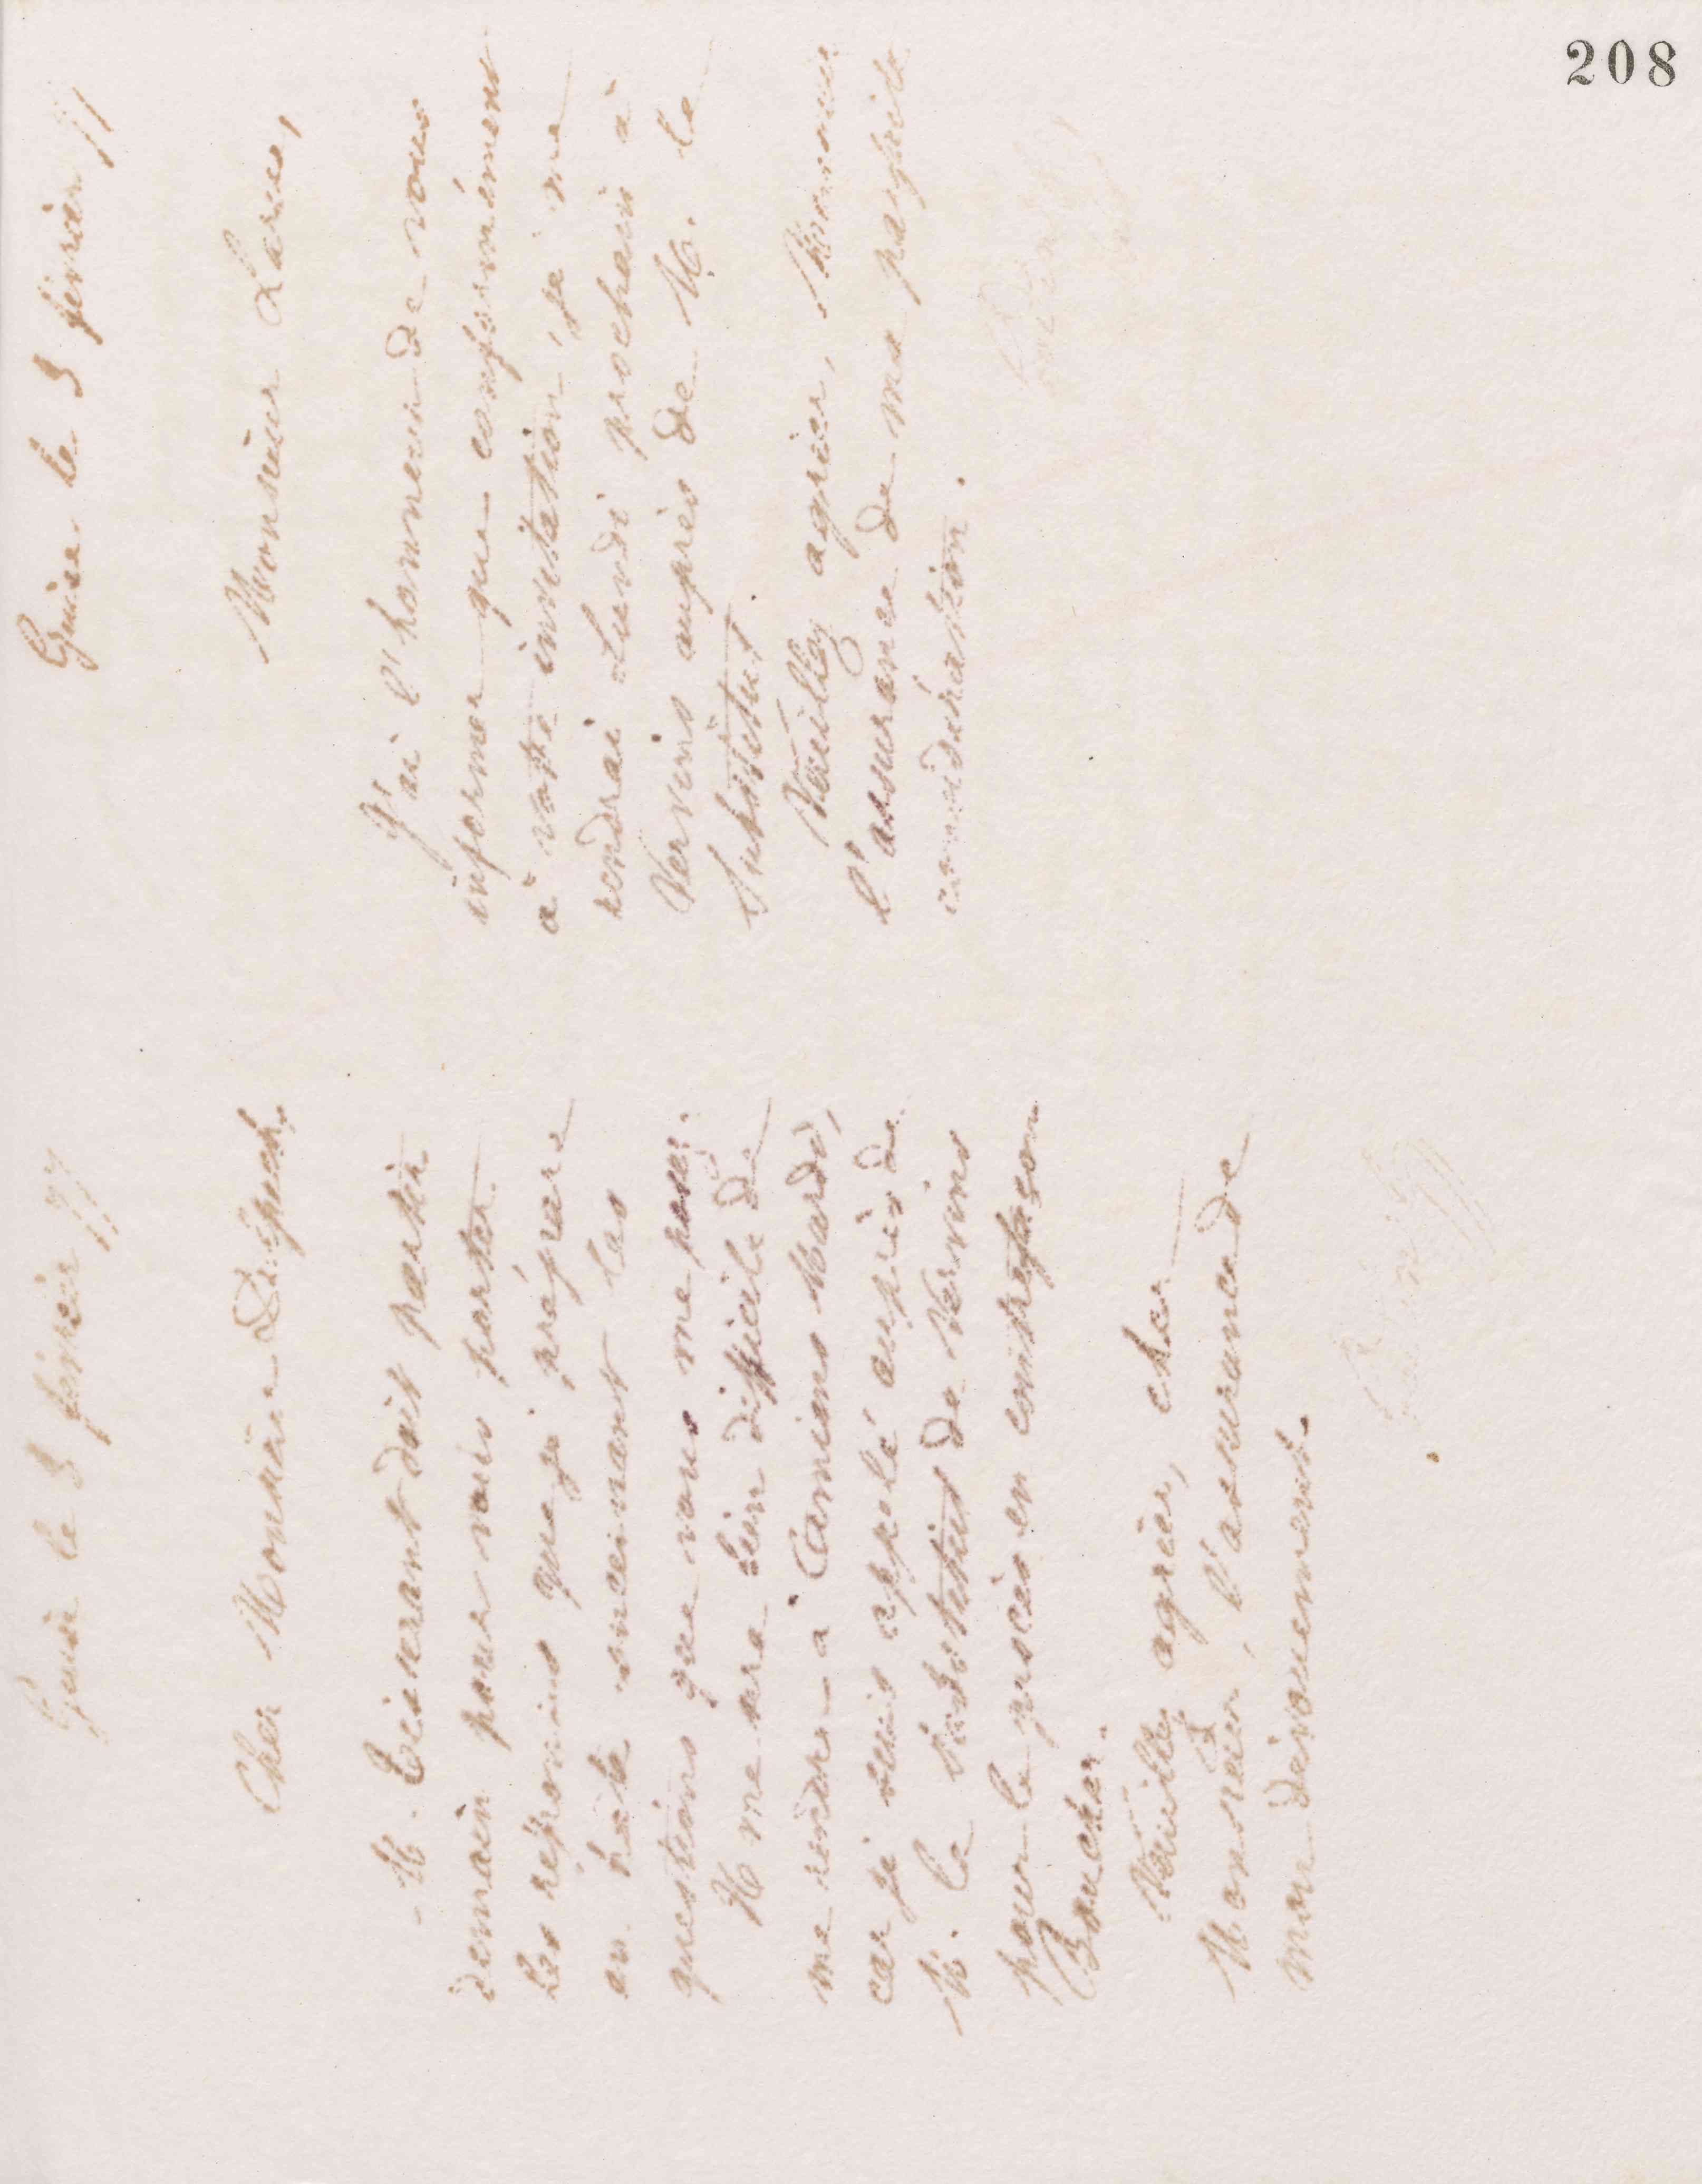 208
Guise le 3 février 77
Cher Monsieur Delpech,
M. Tisserant doit partir
demain pour vous porter
les réponses que je prépare
en hâte concernant les
questions que vous me posez.
Il me sera bien difficile de
me rendre à Amiens Mardi,
car je suis appelé auprès de
M. le substitut de Vervins
pour le procès en contrefaçon
Boucher.
Veuillez agréer, cher
Monsieur, l'assurance de
mon dévouement.
Guise le 3 février 77
Monsieur
J'ai l'honneur de vous
informer que conformément
à votre invitation, je me
rendrai Lundi prochain à
Vervins auprès de M. le
Substitut.
Veuillez agréer, Monsieur
l'assurance de ma parfaite
considération.